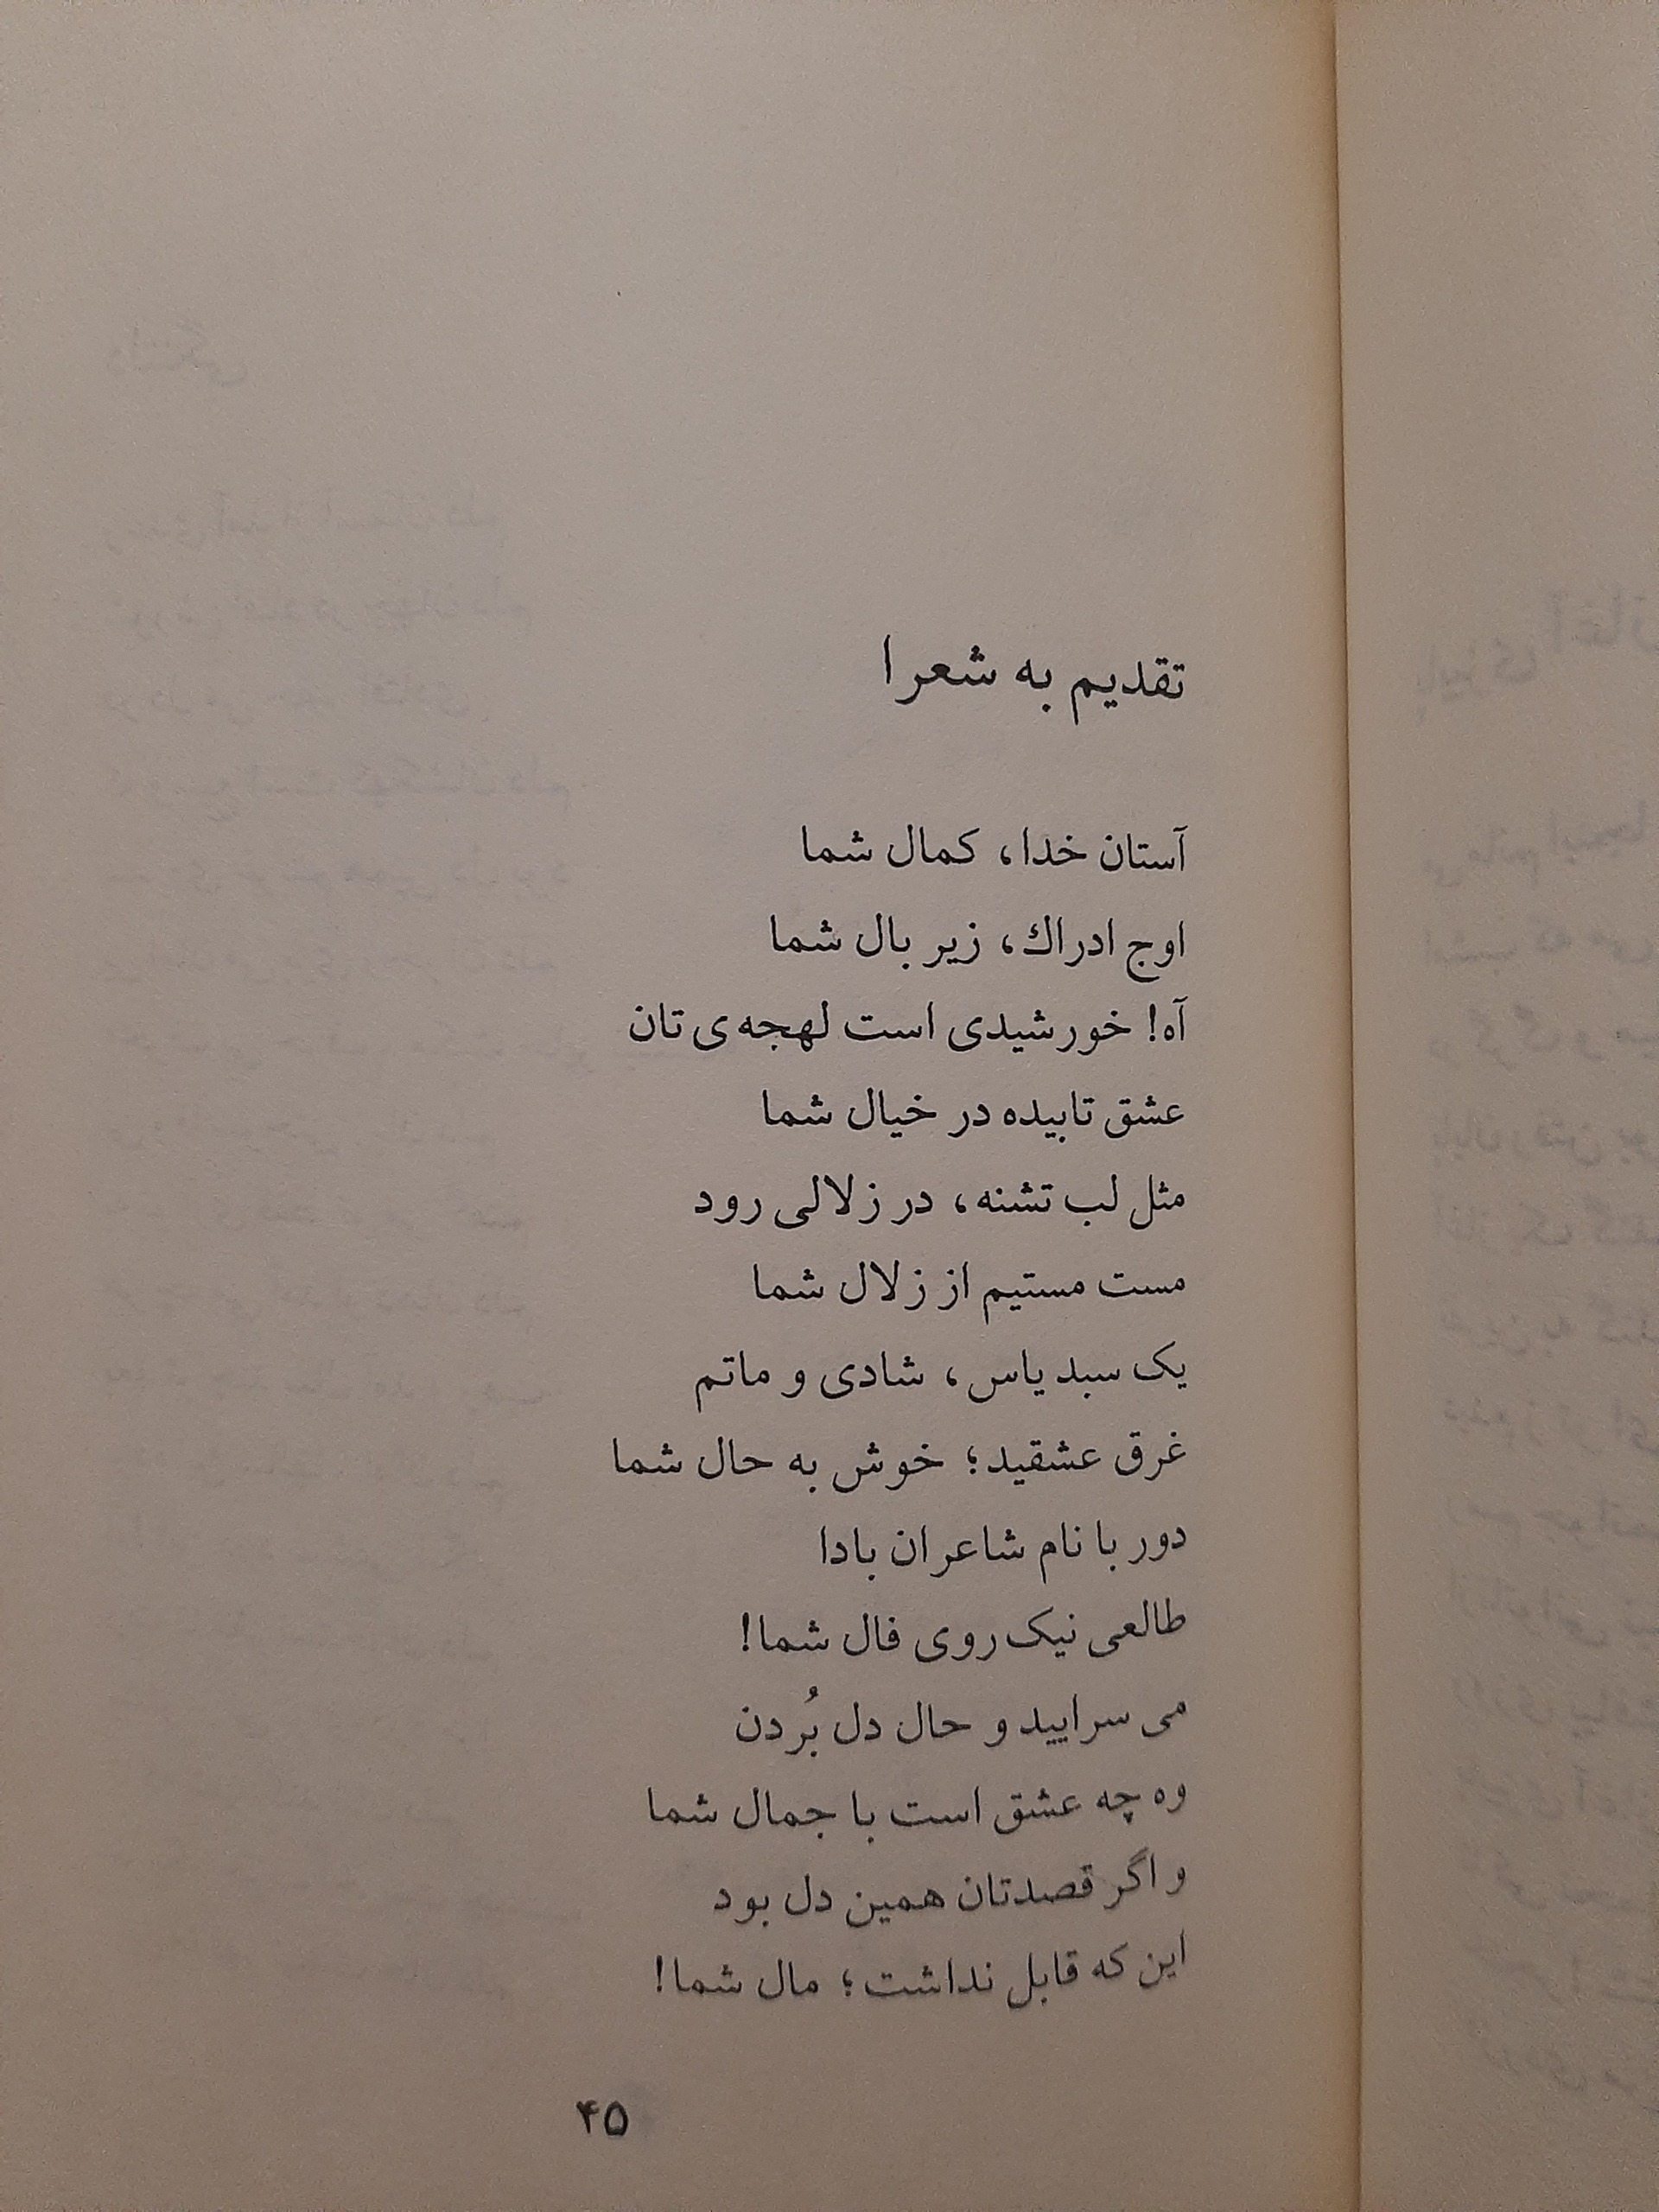 تقدیم به شعرا
آستان خدا، کمال شما
اوج ادراك، زیر بال شما
آه! خورشیدی است لهجه‌ی تان
عشق تابیده در خیال شما
مثل لب تشنه، در زلالی رود
مست مستیم از زلال شما
یک سبد یاس، شادی و ماتم
غرق عشقید؛ خوش به حال شما
دور با نام شاعران بادا
طالعی نیک روی فال شما!
می سرایید و حال دل بُردن
وه چه عشق است با جمال شما
و اگر قصدتان همین دل بود
این که قابل نداشت؛ مال شما!
۴۵